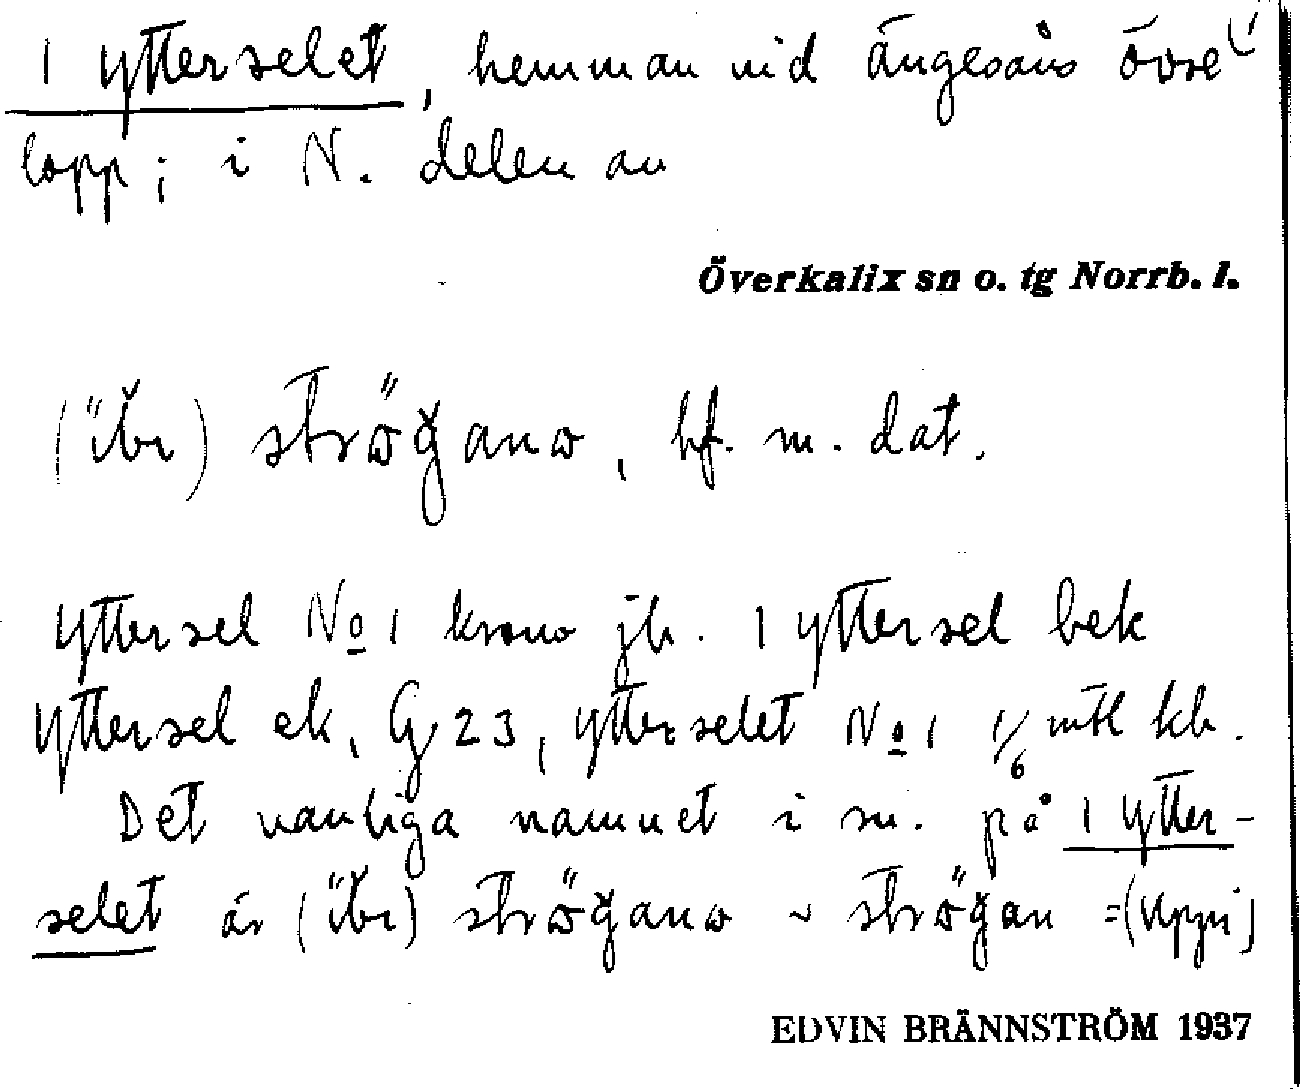 1 Ytterselet, hemman vid Ängesåns övre (!)
lopp; i N. delen av
Överkalix sn o. tg Norrb. l.
(ĭbr) strö̀ǧanω, bf. m. dat.
Yttersel No 1 krono jb. 1 Yttersel bek
Yttersel ek, G 23, Ytterselet No 1 1/6 mtl kb.
Det vanliga namnet i sn. på 1 Ytter-
selet är (ĭbr) ströǧanω ~ ströǧan =(uppi)
EDVIN BRÄNNSTRÖM 1937